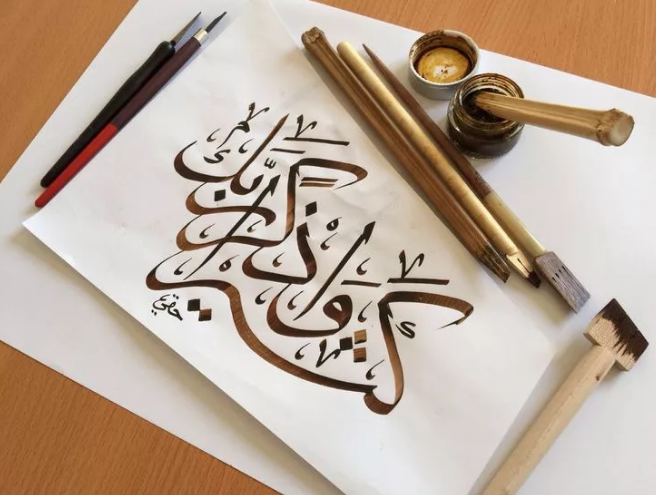 واذكر ربّك كثيرا